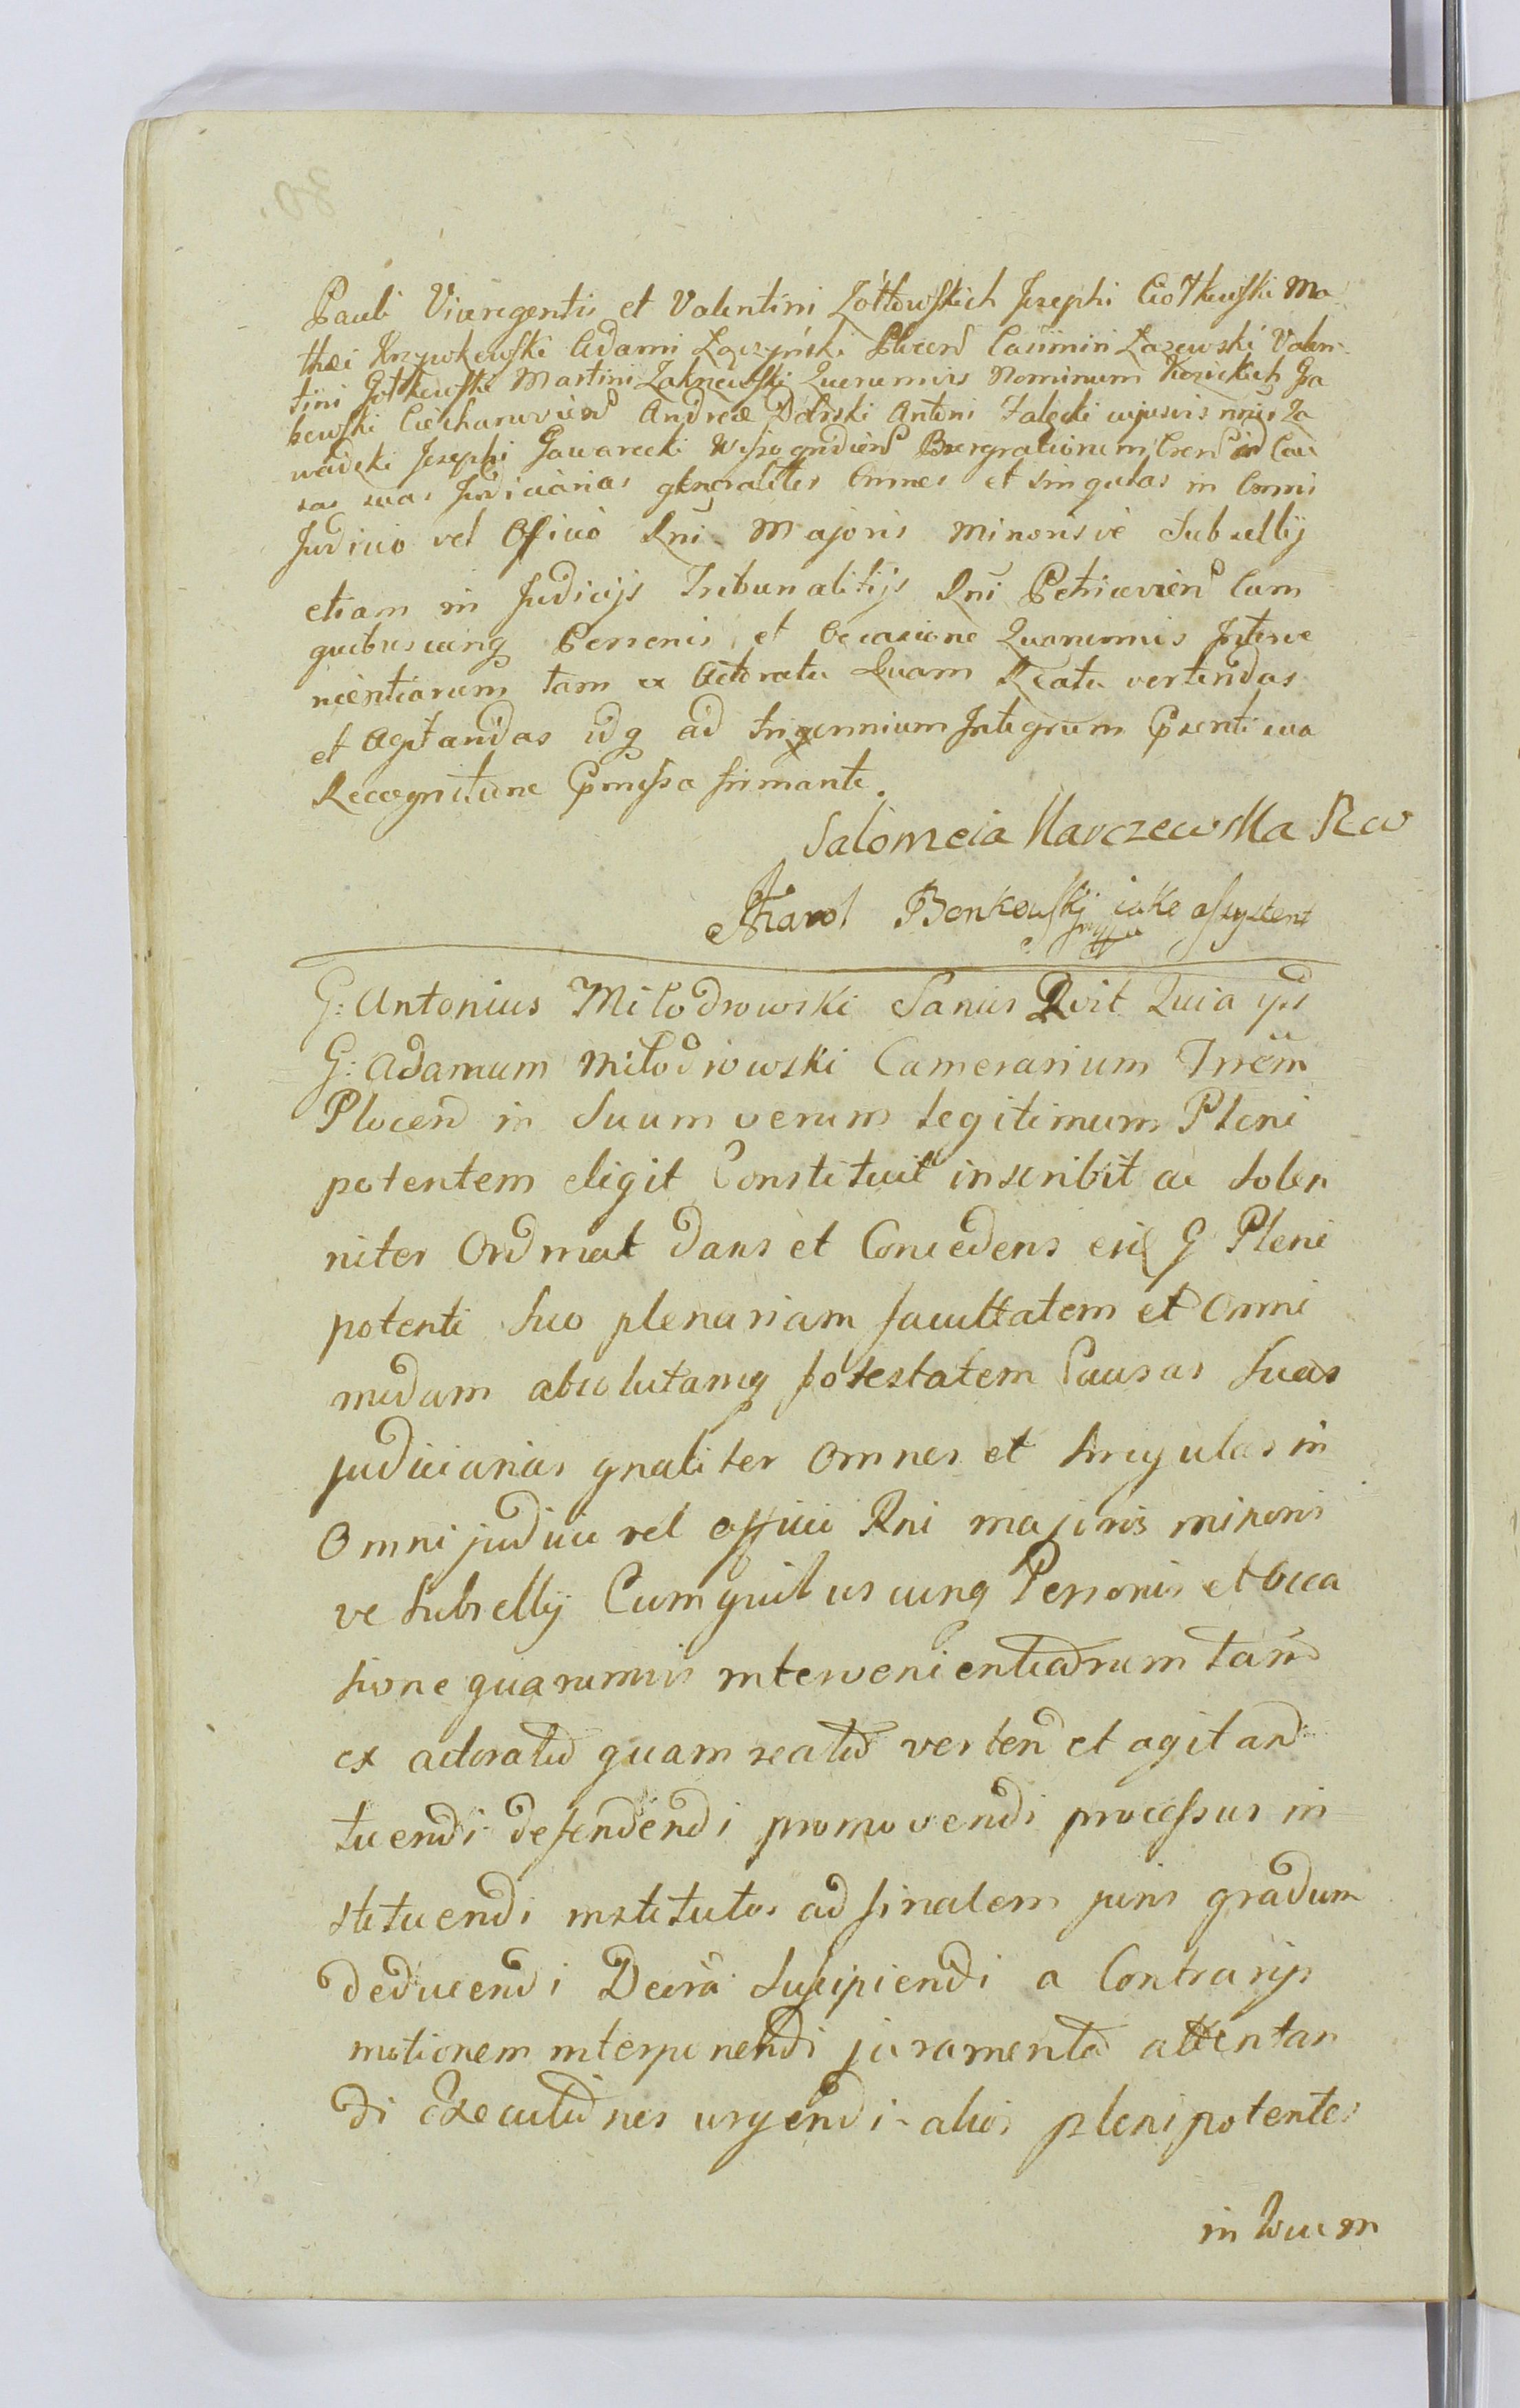 Pauli Viceregentis et Valentini Żółtowskich Josephi Ciołkowski Ma
thæi Krzywkowski Adami Łączyński Plocen Casimiri Łazewski Valen
tini Gołkowski Martini Zakrzewski Quorumvis Nominum Ga
kowski Ciechanovien Andreæ Dolnski Antoni Zaleski cujusvis nnis Za
wadzki Josephi Gawarecki Wyszogrodien Burgrabiorum Cren in Cau
sas suas Judiciarias generaliter Omnes et singulas in Omni
Judicio vel Officio Rni Majoris Minorisve Subsellij
etiam in Judicijs Tribunalitijs Rni Petricovien Cum
quibuscunq Personis et Occasione Quarumvis Interve
nientiarum tam ex Actoratu Quam Reatu vertendas
et Agitandas idq ad triennium Integrum Prsenti sua
Recognitione Prmissa firmante.
Salomeia Karczewska Rw
Karol Bonkowskij iako assystent
G: Antonius Milodrowski Sanus Rvit Quia ipse
G: Adamum Miłodrowski Camerarium Trrem
Plocen in Suum verum legitimum Pleni
potentem eligit Constituit inscribit ac Solen
niter Ordinat dans et Concedens eid G Pleni
potenti Suo plenariam facultatem et Omni
modam absolutamq potestatem Causas Suas
judiciarias gnaliter Omnes et Singulas in
Omni judicio vel officio Rni majoris minoris
ve Subsellij Cum quibuscunq Personis et Occa
sione quarumvis intervenientiarum tam
ex actoratu quam reatu verten et agitan
tuendi defendendi promovendi processus in
stituendi institutos ad finalem juris gradum
deducendi Decra Suscipiendi a Contrarijs
motionem interponendi juramenta attentan
di Executiones urgendi alios plenipotentes
in locum